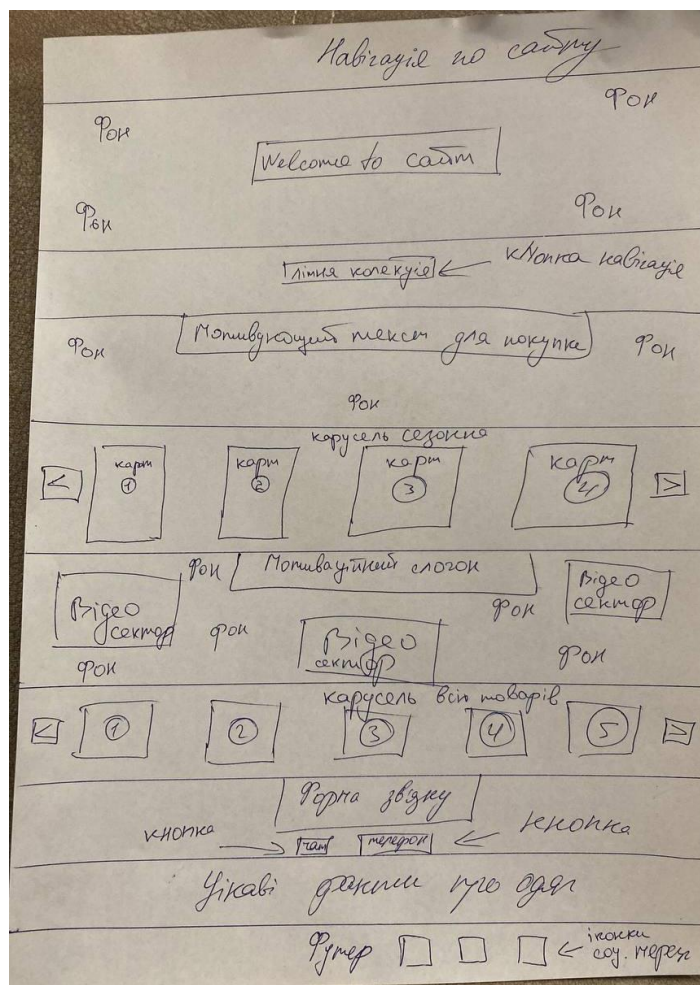 Навігація по сайту
Фон
Фон
Welcome to сайт
Фон
Фон
літня колекція
кнопка навігація
Мотивуючий текст для покупки
Фон
Фон
Фон
карусель сезонна
<
карт
1
карт
2
карт
3
карт
4
>
Фон
Мотиваційний слоган
Відео
сектор
Відео
сектор
Фон
фон
Відео
сектор
фон
фон
карусель всіх товарів
<
1
2
3
4
5
>
Форма звязку
кнопка
чат
телефон
кнопка
Цікаві факти про одяг
Футер
іконки
соц. мереж